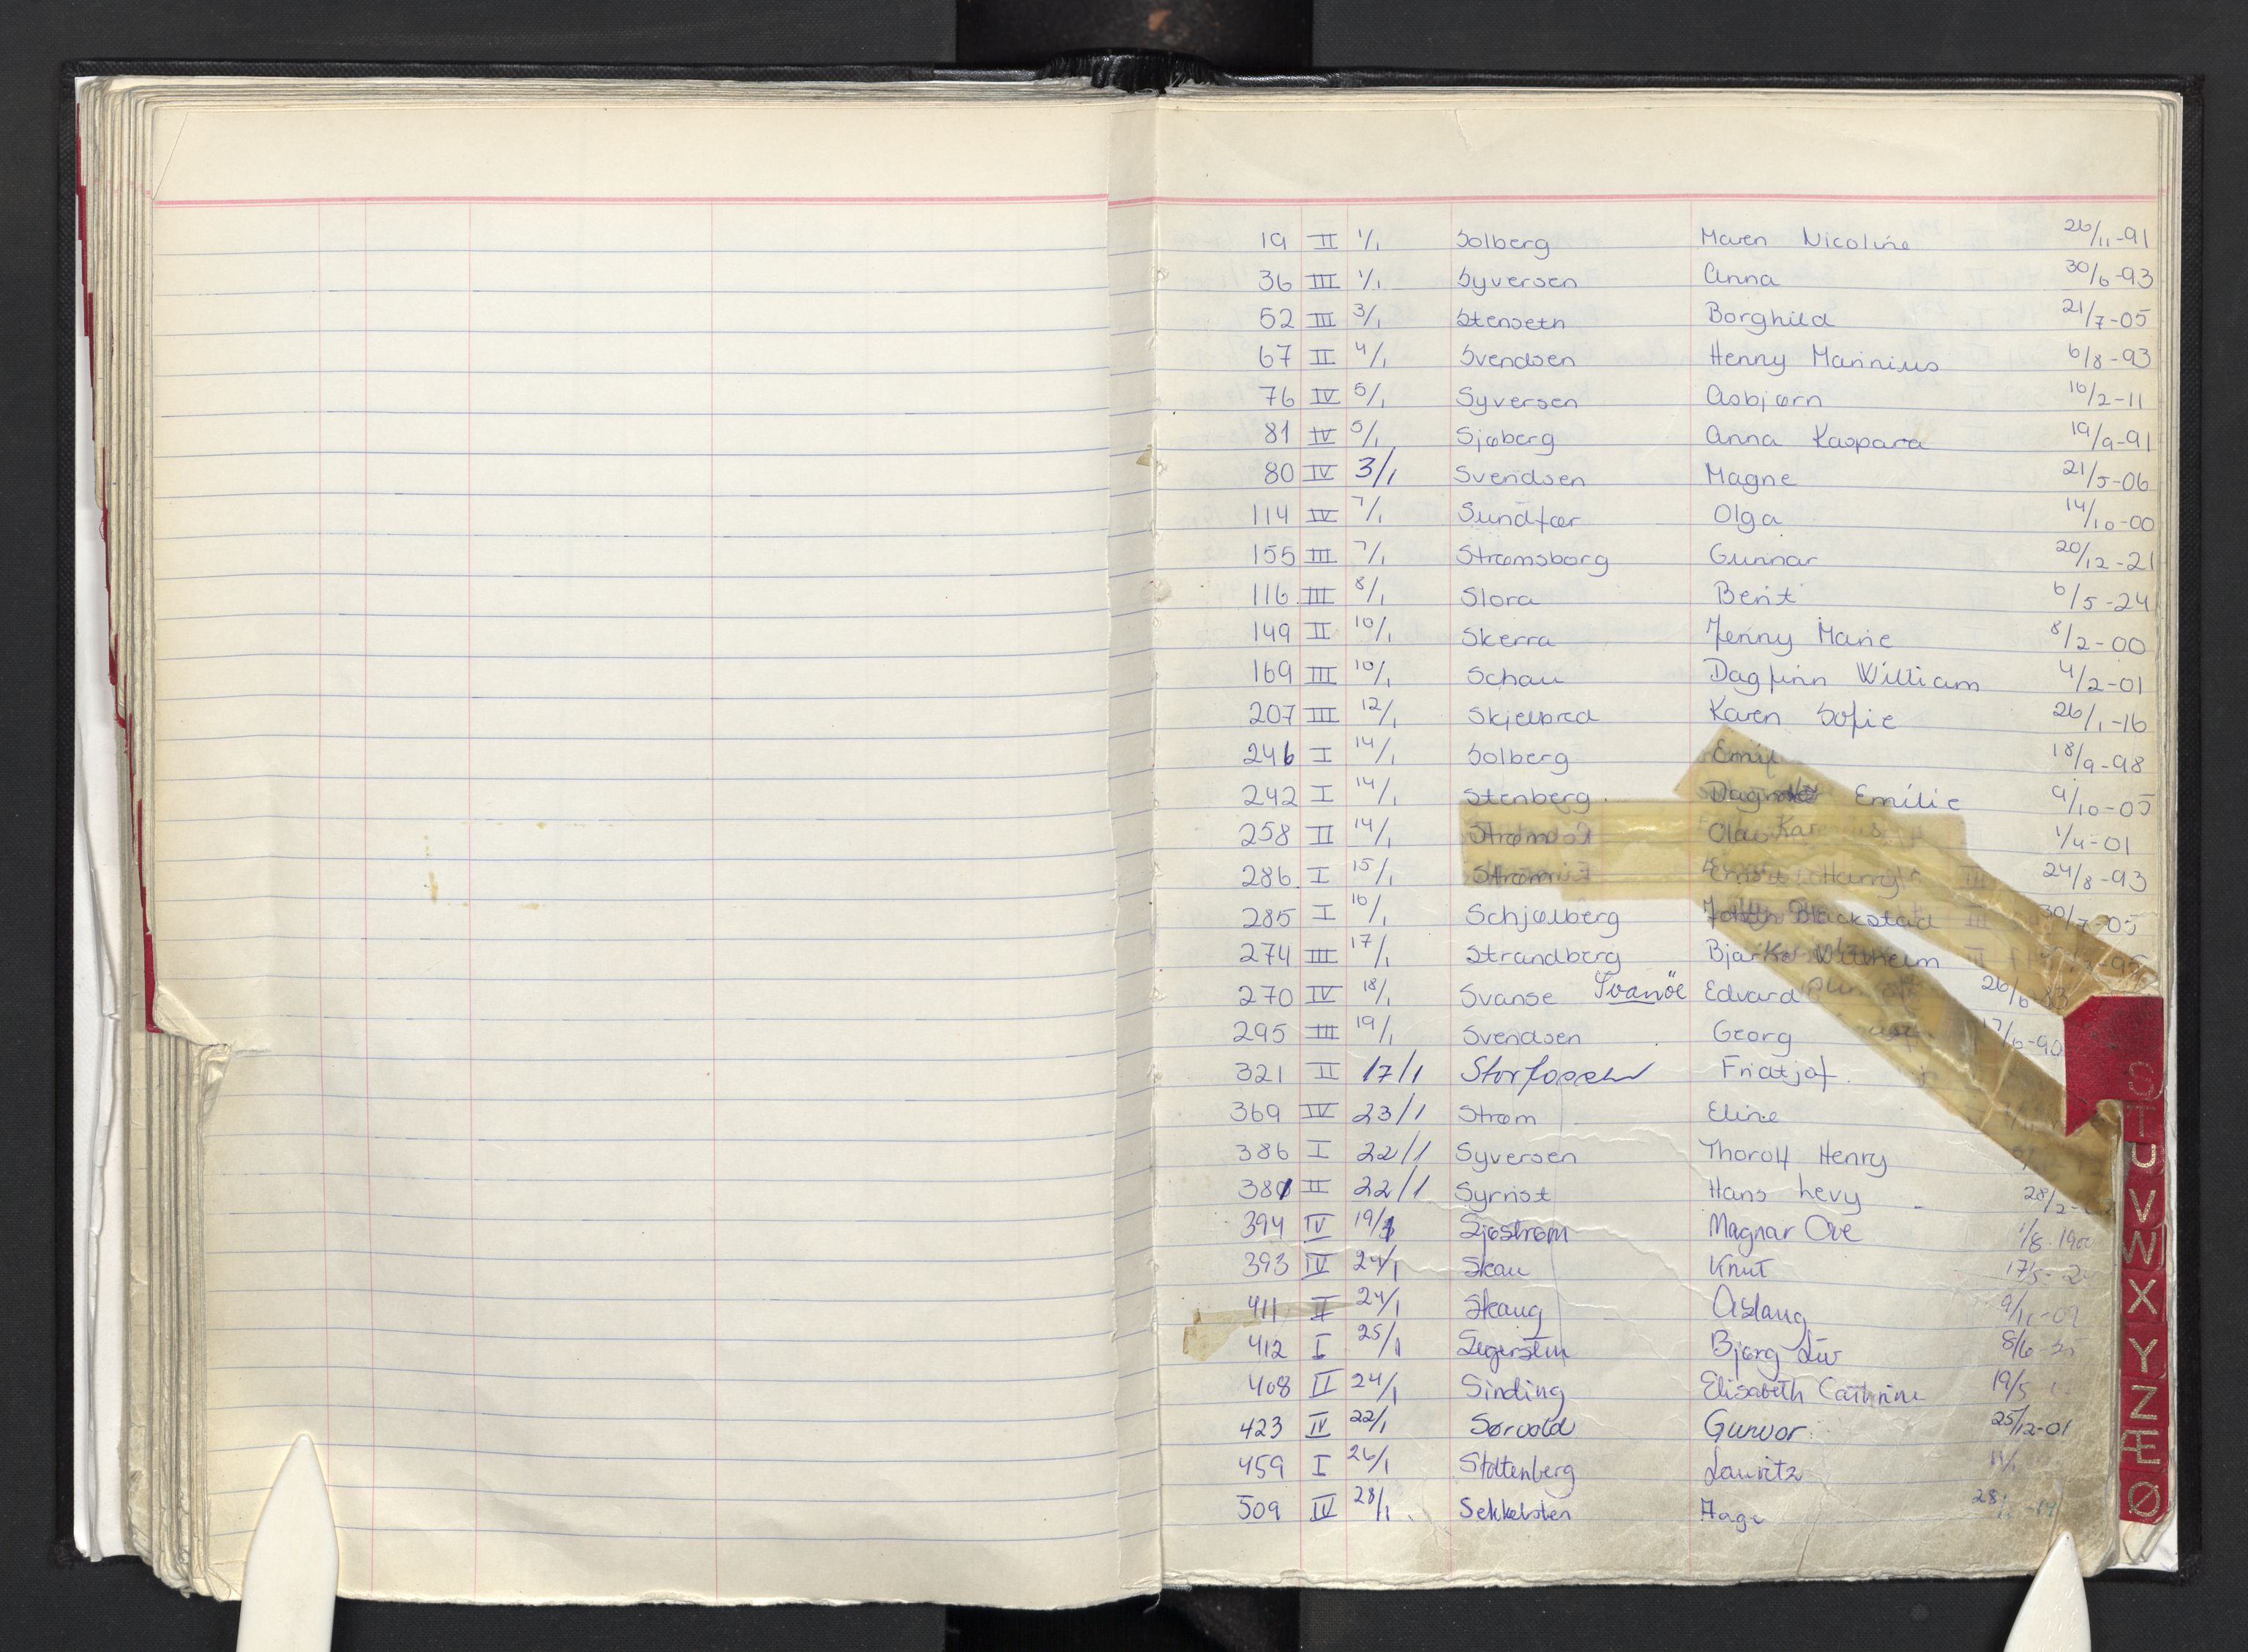 19 II 1/1 Solberg Maren Nicoline 26/11-91
36 III 1/1 Syversen Anna 30/6-93
52 III 3/1 Stenseth Borghild 21/7-05
67 II 4/1 Svendsen Henny Marinius 6/8-93
76 IV 5/1 Syversen Asbjørn 16/2-11
81 IV 5/1 Sjøberg Anna Kaspara 19/9-91
80 IV 3/1 Svendsen Magne 21/5-06
114 IV 7/1 Sundfær Olga 14/10-00
155 III 7/1 Strømsborg Gunnar 20/12-21
116 III 8/1 Slora Berit 6/5-24
149 II 10/1 Skerra Jenny Marie 8/2-00
169 III 10/1 Schau Dagfinn William 4/2-01
207 III 12/1 Skjelbred Karen Sofie 26/1-16
246 I 14/1 Solberg Emil 18/9-98
242 I 14/1 Stenberg Emilie 9/10-05
258 II 14/1 Olav 1/4-01
286 I 15/1 Strøm Harry 24/8-93
285 I 16/1 Schjølberg Blackstad 30/7-05
274 III 17/1 Strandberg Bjarke Wilhelm
270 IV 18/1 Svanse Svanöe Edvard 26/6-83
295 III 19/1 Svendsen Georg 17/6-90
321 II 17/1 Storfossen Fridtjof
369 IV 23/1 Strøm Eline
386 I 22/1 Syversen Thorolf Henry
381 II 22/1 Syrrist Hans Levy 28/2-
394 IV 19/1 Sjøstrøm Magnar Ove 1/8-190
393 IV 24/1 Skau Knut 17/5-2
411 II 24/1 Skaug Aslaug 9/11-07
412 I 25/1 Segersten Bjørg Liv 8/6
408 II 24/1 Sinding Elisabeth Cathrine 19/5
423 IV 22/1 Sørvold Gunvor 25/12-01
459 I 26/1 Stoltenberg Lauritz
509 IV 28/1 Sekkelsten Aage 28/
S
T
U
V
W
X
Y
Z
Æ
Ø